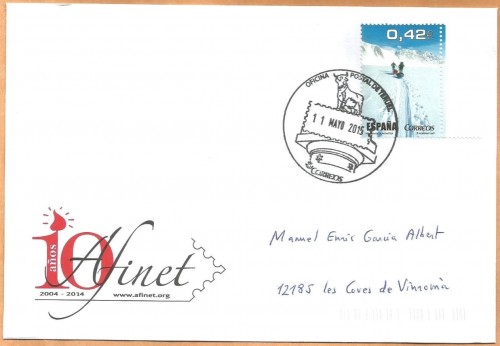 0,42€
OFICINA POSTAL DE TERUEL
11 MAYO 2015
ESPAÑA CORREOS
CORREOS
10 años
Afinet
2004 - 2014
www.afinet.org
Manuel Enric Garcia Albert
12185 les Coves de Vinromà